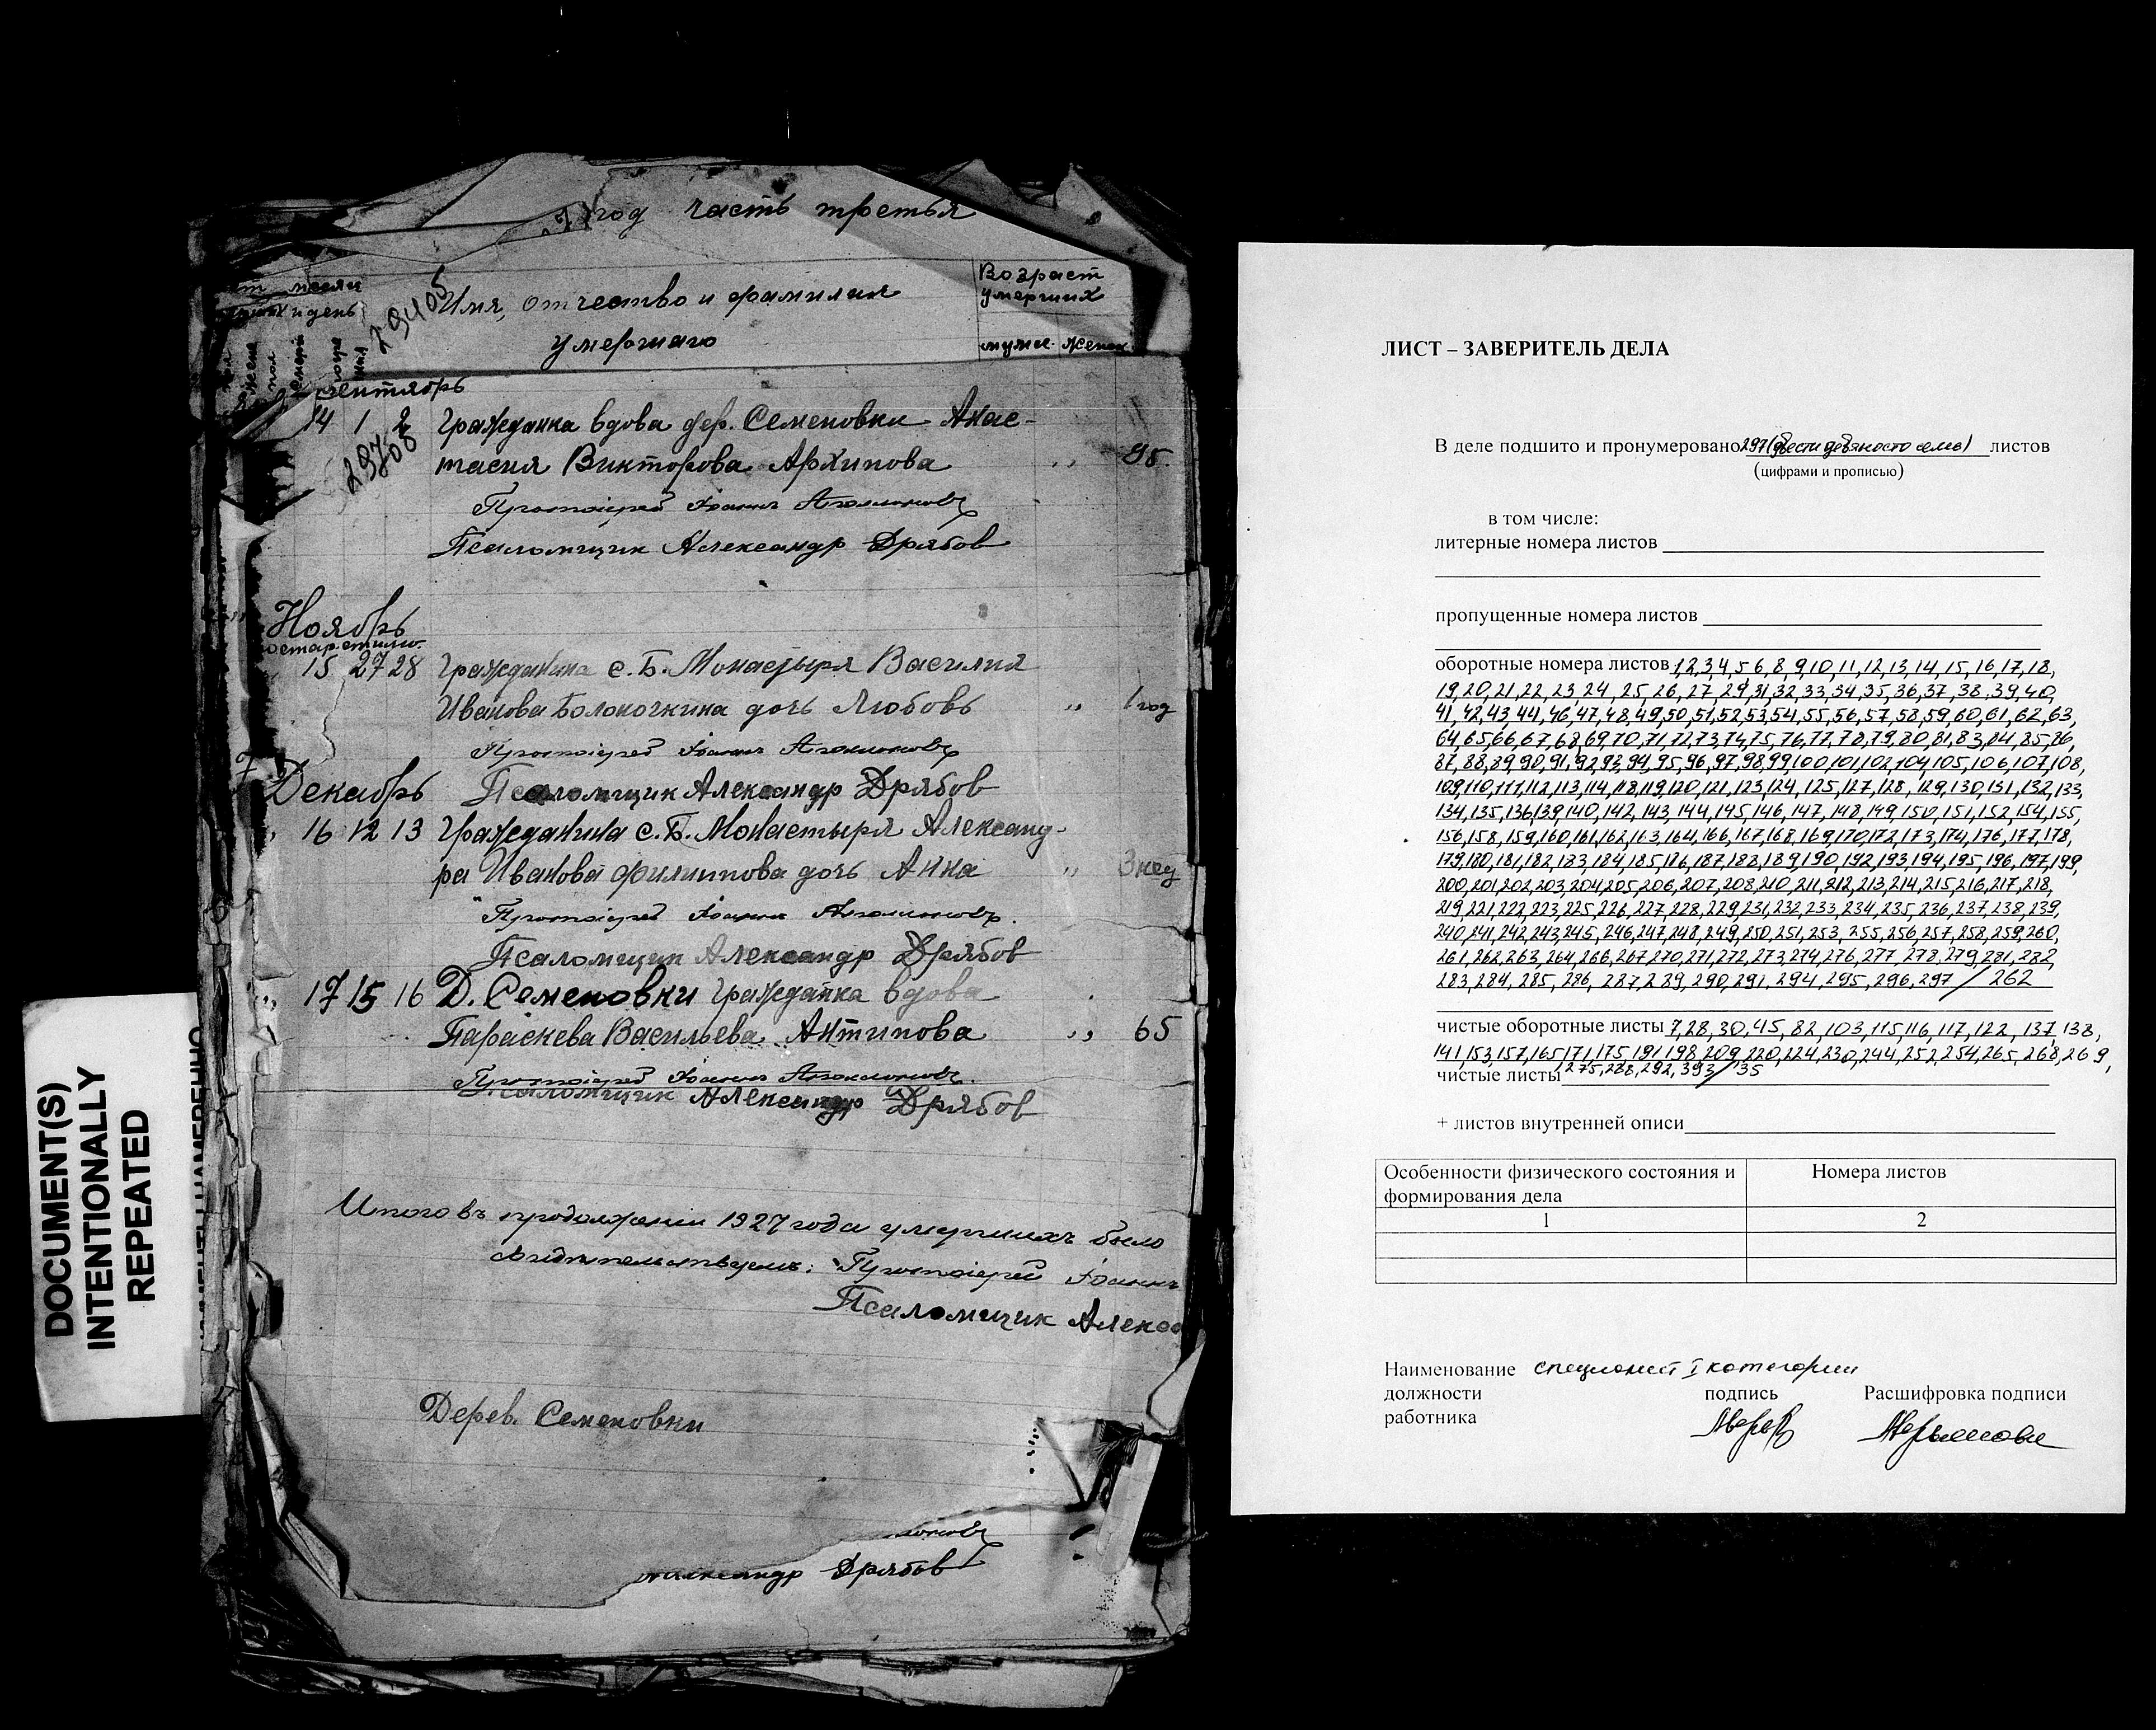 год часть третья
месяц
и день
29405
Имя, отчество и фамилия
умершаго
Возраст
умерших
мужс. женск.
Сентябрь
14 1 2 Гражданка вдова дер. Семеновки Анас-
тасия Викторова Архипова „ 95.
29708
Протоіерей Іоаннъ
Псаломщик Александр Дрябов
Ноябрь
по стар. стилю.
15 27 28 Гражданина с. Б. Монастыря Василия
Иванова Болоночкина дочь Любовь „ 1 год
Протоіерей Іоаннъ
Псаломщик Александр Дрябов
Декабрь
16 12 13 Гражданина с. Б. Монастыря Александ-
ра Иванова Филиппова дочь Анна „ 3 нед
Протоіерей Іоаннъ
Псаломщик Александр Дрябов
17 15 16 Д. Семеновки Гражданка вдова
Параскева Васильева Антипова „ 65
Протоіерей Іоаннъ
Псаломщик Александр Дрябов
Итого въ продолжении 1927 года умершихъ было
свидѣтельствуемъ: Протоіерей Іоаннъ
Псаломщик Алекса
Дерев. Семеновки
Дрябов
DOCUMENT(S)
INTENTIONALLY
REPEATED
ЛИСТ – ЗАВЕРИТЕЛЬ ДЕЛА
В деле подшито и пронумеровано 297 (двести девяносто семь) листов
(цифрами и прописью)
в том числе:
литерные номера листов
пропущенные номера листов
оборотные номера листов 1,2,3,4,5,6,8,9,10,11,12,13,14,15,16,17,18,
19,20,21,22,23,24,25,26,27,29,31,32,33,34,35,36,37,38,39,40,
41,42,43,44,46,47,48,49,50,51,52,53,54,55,56,57,58,59,60,61,62,63,
64,65,66,67,68,69,70,71,72,73,74,75,76,77,78,79,80,81,83,84,85,86,
87,88,89,90,91,92,93,94,95,96,97,98,99,100,101,102,104,105,106,107,108,
109,110,111,112,113,114,118,119,120,121,123,124,125,127,128,129,130,131,132,133,
134,135,136,139,140,142,143,144,145,146,147,148,149,150,151,152,154,155,
156,158,159,160,161,162,163,164,166,167,168,169,170,172,173,174,176,177,178,
179,180,181,182,183,184,185,186,187,188,189,190,192,193,194,195,196,197,199,
200,201,202,203,204,205,206,207,208,210,211,212,213,214,215,216,217,218,
219,221,222,223,225,226,227,228,229,231,232,233,234,235,236,237,238,239,
240,241,242,243,245,246,247,248,249,250,251,253,255,256,257,258,259,260,
261,262,263,264,266,267,270,271,272,273,274,276,277,278,279,281,282,
283,284,285,286,287,289,290,291,294,295,296,297 / 262
чистые оборотные листы 7,28,30,45,82,103,115,116,117,122,137,138,
141,153,157,165,171,175,191,198,209,220,224,230,244,252,254,265,268,269,
чистые листы 275,288,292,393/35
+ листов внутренней описи
Особенности физического состояния и формирования дела
Номера листов
1 2
Наименование должности работника специалист I категории
подпись
Расшифровка подписи